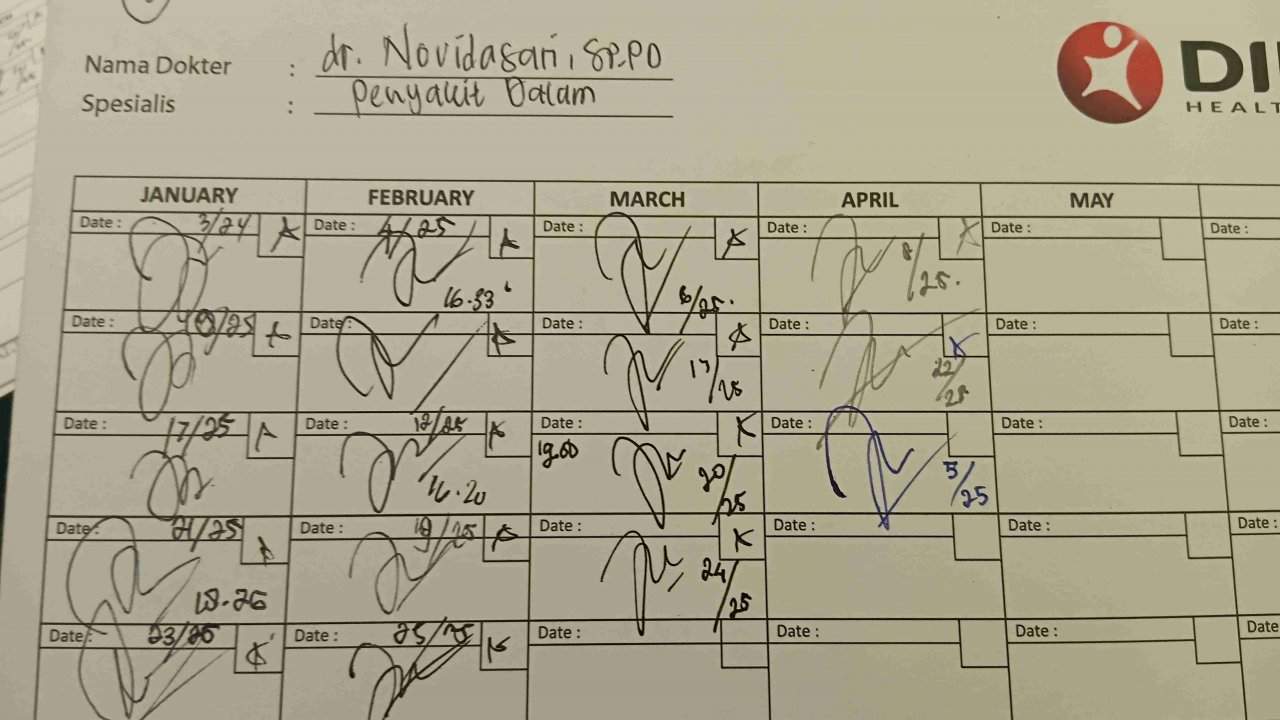 Nama Dokter : dr. Novidasari, Sp.PD
Spesialis : Penyakit Dalam
DI
HEALT
JANUARY FEBRUARY MARCH APRIL MAY
Date : 3/24 A Date : 4/25 A Date : A Date : Date : Date :
16.33 6/25. 8/25.
Date : /25 A Date : A Date : A Date : Date : Date :
17/25 22/25
Date : 17/25 A Date : 12/25 A Date : K Date : Date : Date :
16.20 19.00 20/25 5/25
Date : 21/25 A Date : 19/25 A Date : K Date : Date : Date :
18.26 24/25
Date : 23/25 K Date : 25/25 K Date : Date : Date : Date